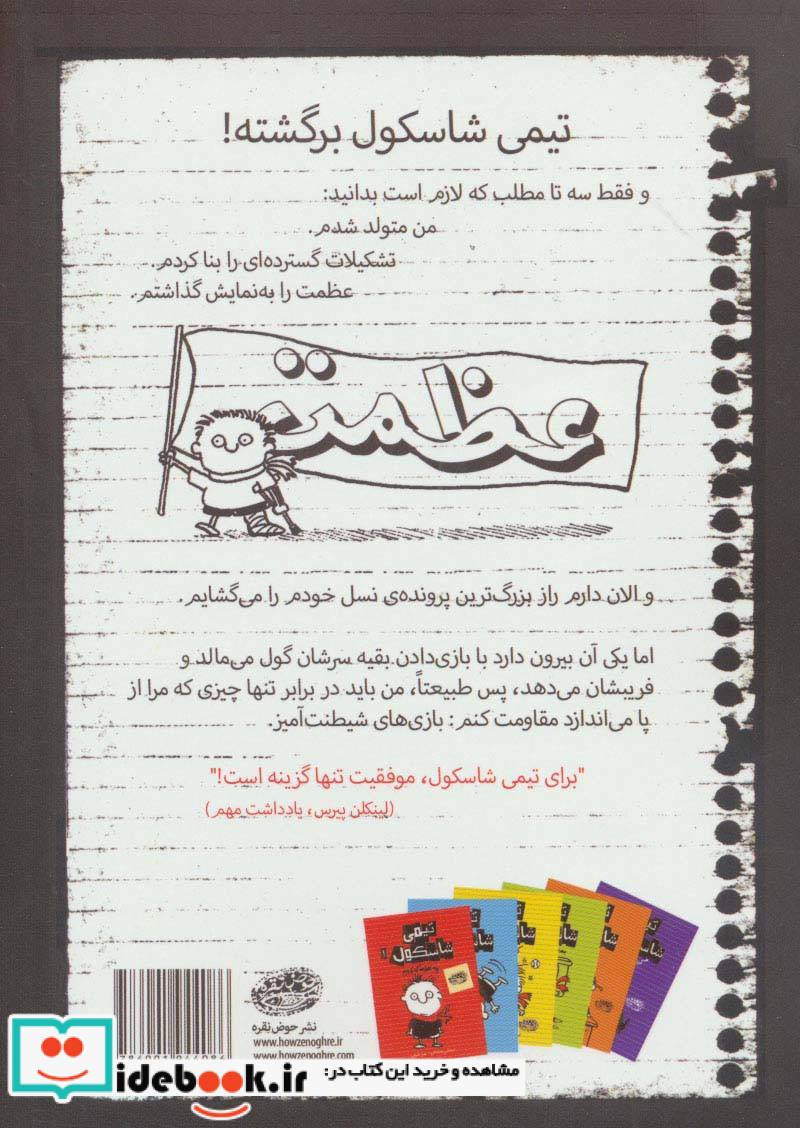 تیمی شاسکول برگشته!
و فقط سه تا مطلب که لازم است بدانید:
من متولد شدم.
تشکیلات گسترده‌ای را بنا کردم.
عظمت را به‌نمایش گذاشتم.
عظمت
و الان دارم راز بزرگ‌ترین پرونده‌ی نسل خودم را می‌گشایم.
اما یکی آن بیرون دارد با بازی‌دادن بقیه سرشان گول می‌مالد و
فریبشان می‌دهد، پس طبیعتاً، من باید در برابر تنها چیزی که مرا از
پا می‌اندازد مقاومت کنم: بازی‌های شیطنت‌آمیز.
"برای تیمی شاسکول، موفقیت تنها گزینه است!"
(لینکلن پیرس، یادداشت مهم)
تیمی
شاسکول ۱
نشر حوض نقره
www.howzenoghre.ir
www.howzenoghre.com
مشاهده و خرید این کتاب در:
idebook.ir